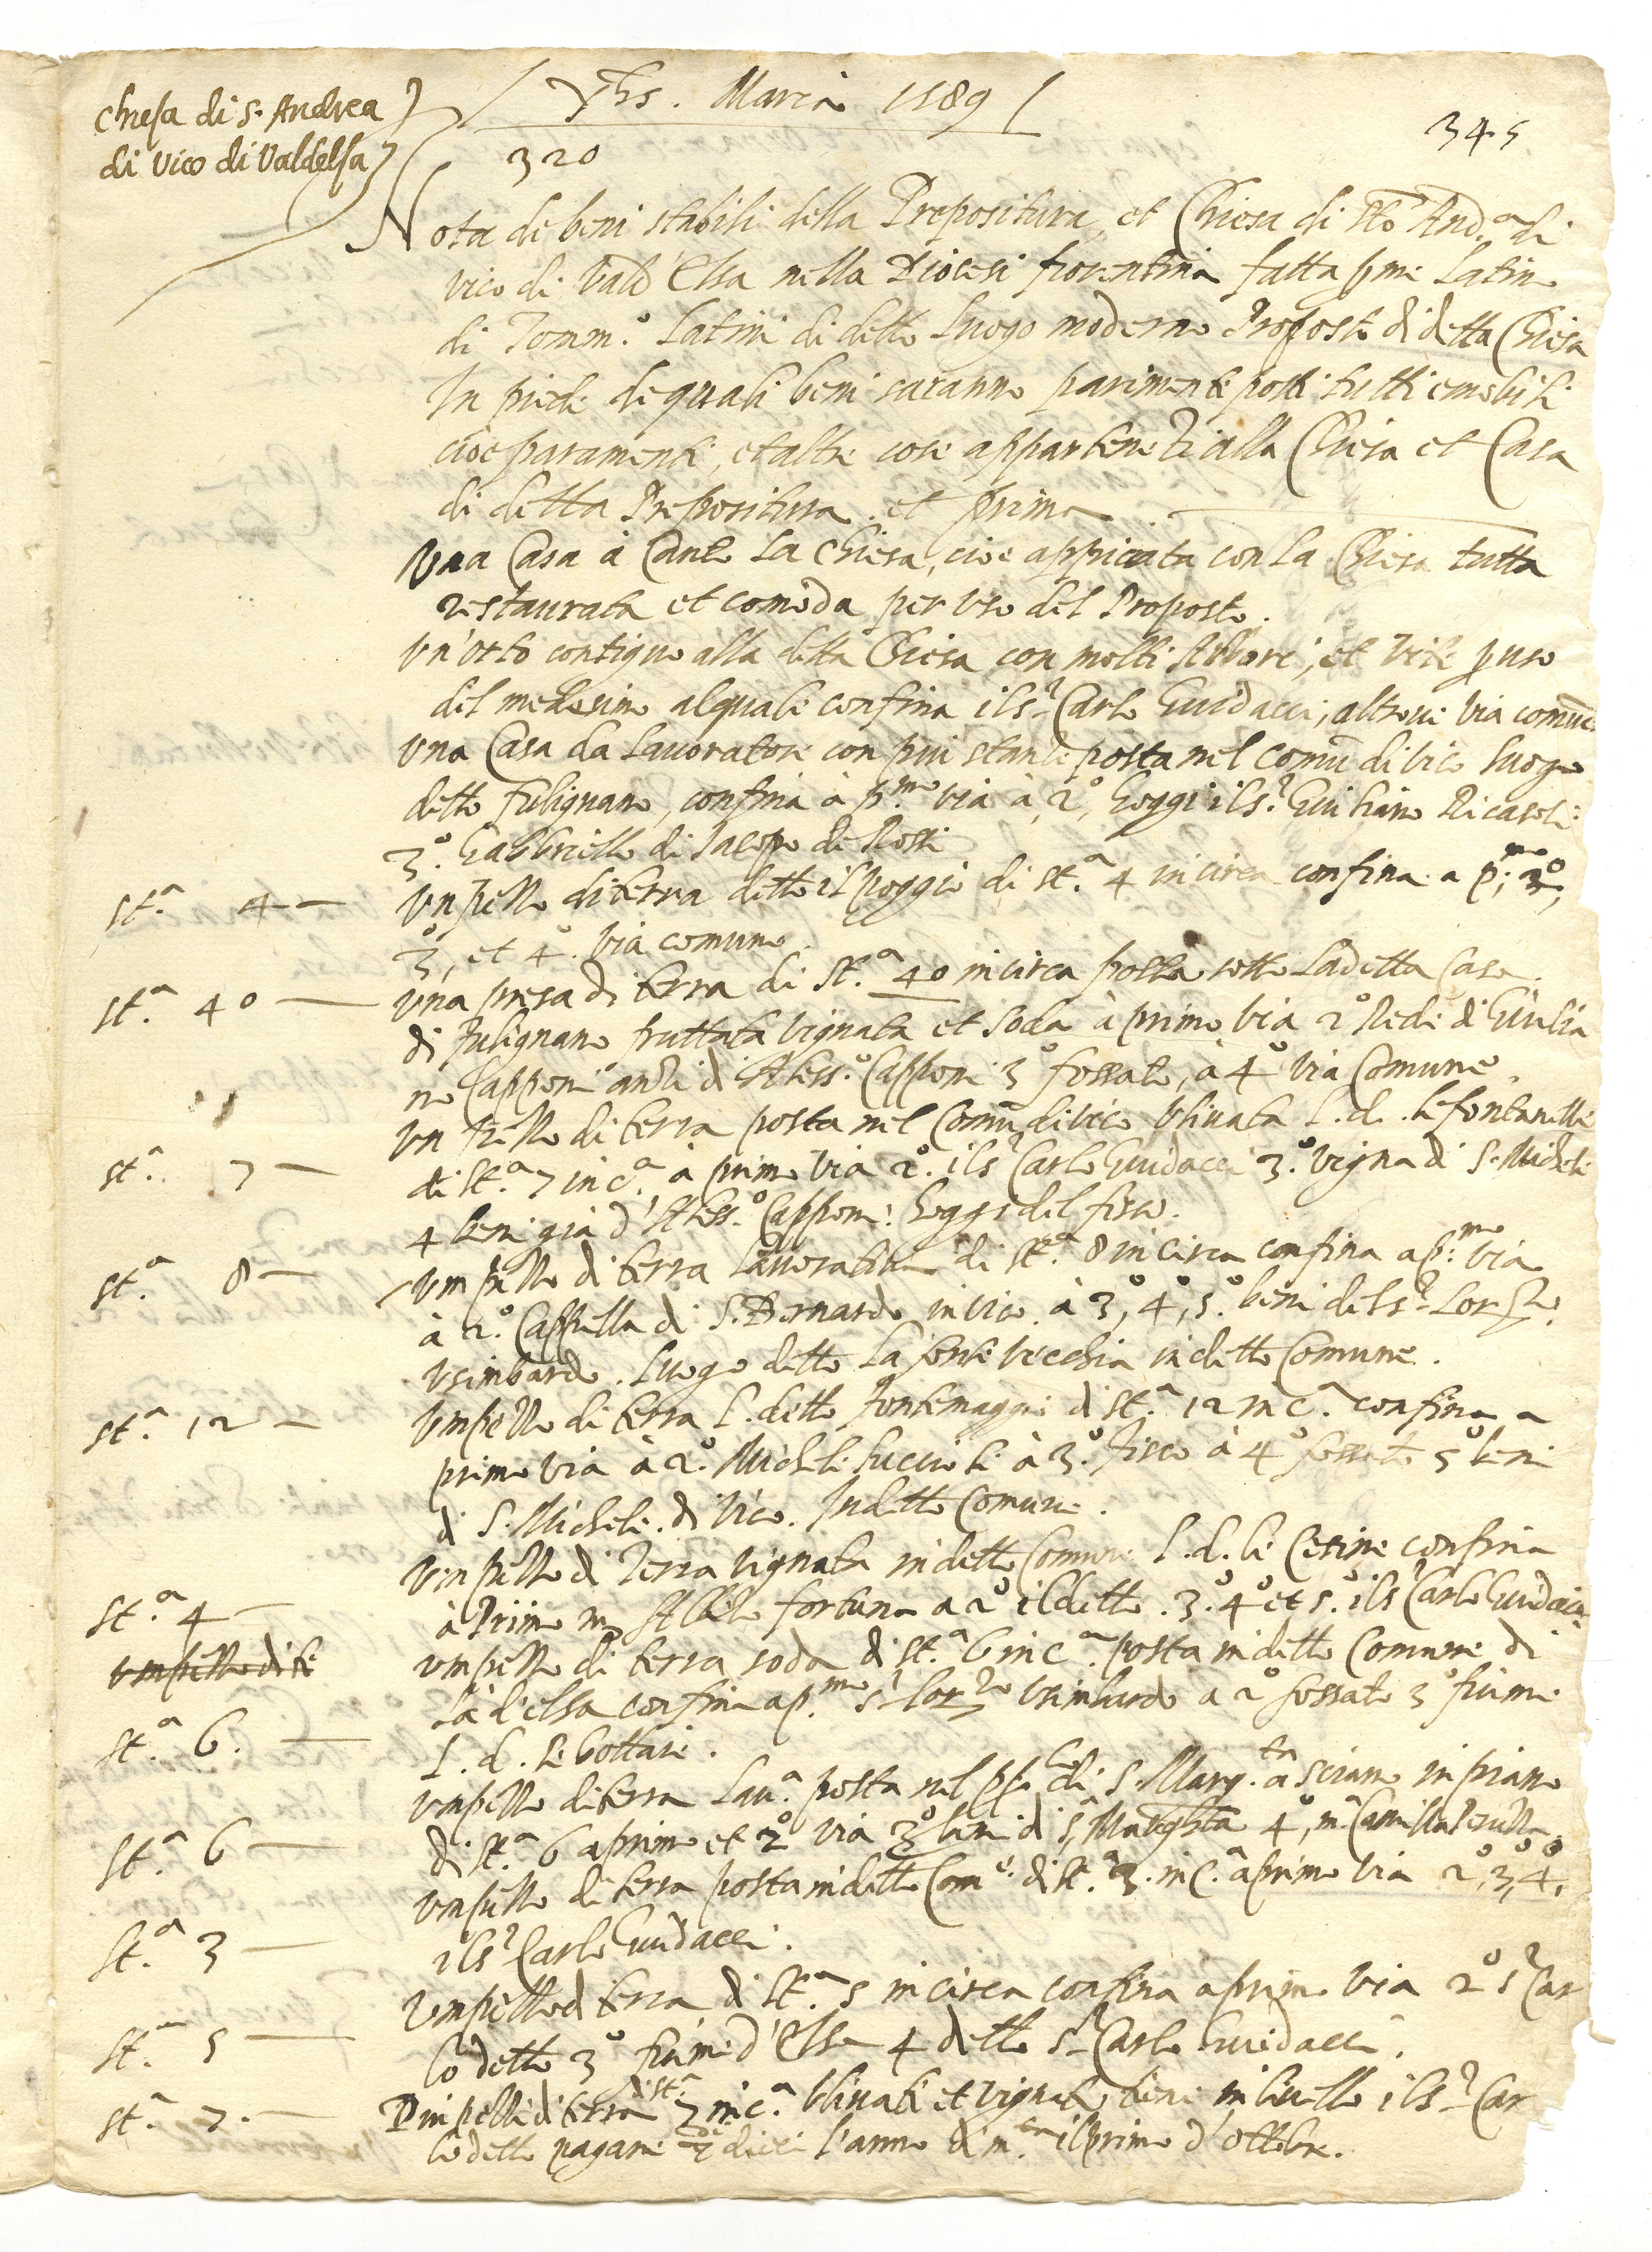 Chiesa di S. Andrea
di Vico di Valdelsa
Yhs. Maria 1589
320
345
Nota de beni stabili della Prepositura, et Chiesa di Sto And.a di
vico di Vald'Elsa nella Diocesi fiorentina fatta p me Latino
di Tomm.o Latini di detto Luogo moderno Proposto di detta Chiesa
In piede de quali beni saranno parimente posti tutti e mobili
cioe paramenti, et altre cose appartenēti alla Chiesa et Casa
di detta Prepositura. et prima
Una Casa à Canto la Chiesa, cioe appiccata con la Chiesa tutta
restaurata et comoda per uso del Proposto.
Un'orto contiguo alla detta Chiesa con molti Arbori, et vite p uso
del medesimo al quale confina il s.r Carlo Guidacci, altrove via comune
Una Casa da Lavoratore con piu stanze posta nel Comū di vico luogo
detto Fulignano, confina à p.mo via à 2.o hoggi il s.r Giuliano Ricasoli
3.o Gabbriello di Jacopo de Rossi
st.a 4 — Un pezzo di terra detto il poggio di st.a 4 in circa confina a p.mo, 2o,
3o, et 4o. via comune.
st.a 40 — Una presa di terra di st.a 40 in circa posta sotto la detta Casa
di Fulignano fruttata vignata et soda à primo via 2o Rede di Giulia
no Capponi anzi d'Aless.o Capponi 3o fossato, à 4o via Comune
Un pezzo di terra posta nel Comū di vico Ulivata l. d. le fontanelle
st.a 7 — di st.a 7 in c.a, à primo via 2o. il s.r Carlo Guidacci 3.o vigna di S. Michele
4 beni già d'Aless.o Capponi hoggi del fisco.
st.a 8 — Un pezzo di terra lavoratia di st.a 8 in circa confina a p.mo via
à 2.o Cappella di S. Bernardo in vico à 3o, 4o, 5o. beni del s.r Lor.zo
Usimbardi. Luogo detto la fonte vecchia in detto Comune.
st.a 12 — Un pezzo di terra l. detto fontemaggio di st.a 12 in c.a confina a
primo via à 2.o Michele à 3.o fisco à 4o fossato 5o beni
di S. Michele di Vico. In detto Comune.
Un pezzo di Terra vignata in detto Comune l. d. le Cetine confina
st.a 4 — à Primo m. fortuna a 2o il detto. 3.o 4o et 5.o il s.r Carlo Guidacci
un pezzo di te
un pezzo di terra soda di st.a 6 in c.a posta in detto Comune di
là d'elsa confina a p.mo s.r Lor.zo Usimbardi a 2o fossato 3o fiume
st.a 6. — l. d. le bottaie.
Un pezzo di terra Lav.a posta nel pplo di S. Marg.ta a Sciano in piano
st.a 6 — di st.a 6 a primo et 2o via 3o beni di s.ta Margh.ta 4o, m.a Camilla
Un pezzo di terra posta in detto Com.e di st.a 3. in c.a à primo via 2o, 3o, 4o,
st.a 3 — il s.r Carlo Guidacci.
Un pezzo di terra di st.a 5 in circa confina a primo via 2o s.r Car
st.a 5 — lo detto 3o fiume d'Elsa 4 detto s.r Carlo Guidacci.
st.a 7. — Piu pezzi di terra di st.a 7 in c.a Ulivati et vignati tiene in livello il s.r Car
lo detto pagane dieci l'anno il primo d'ottobre.